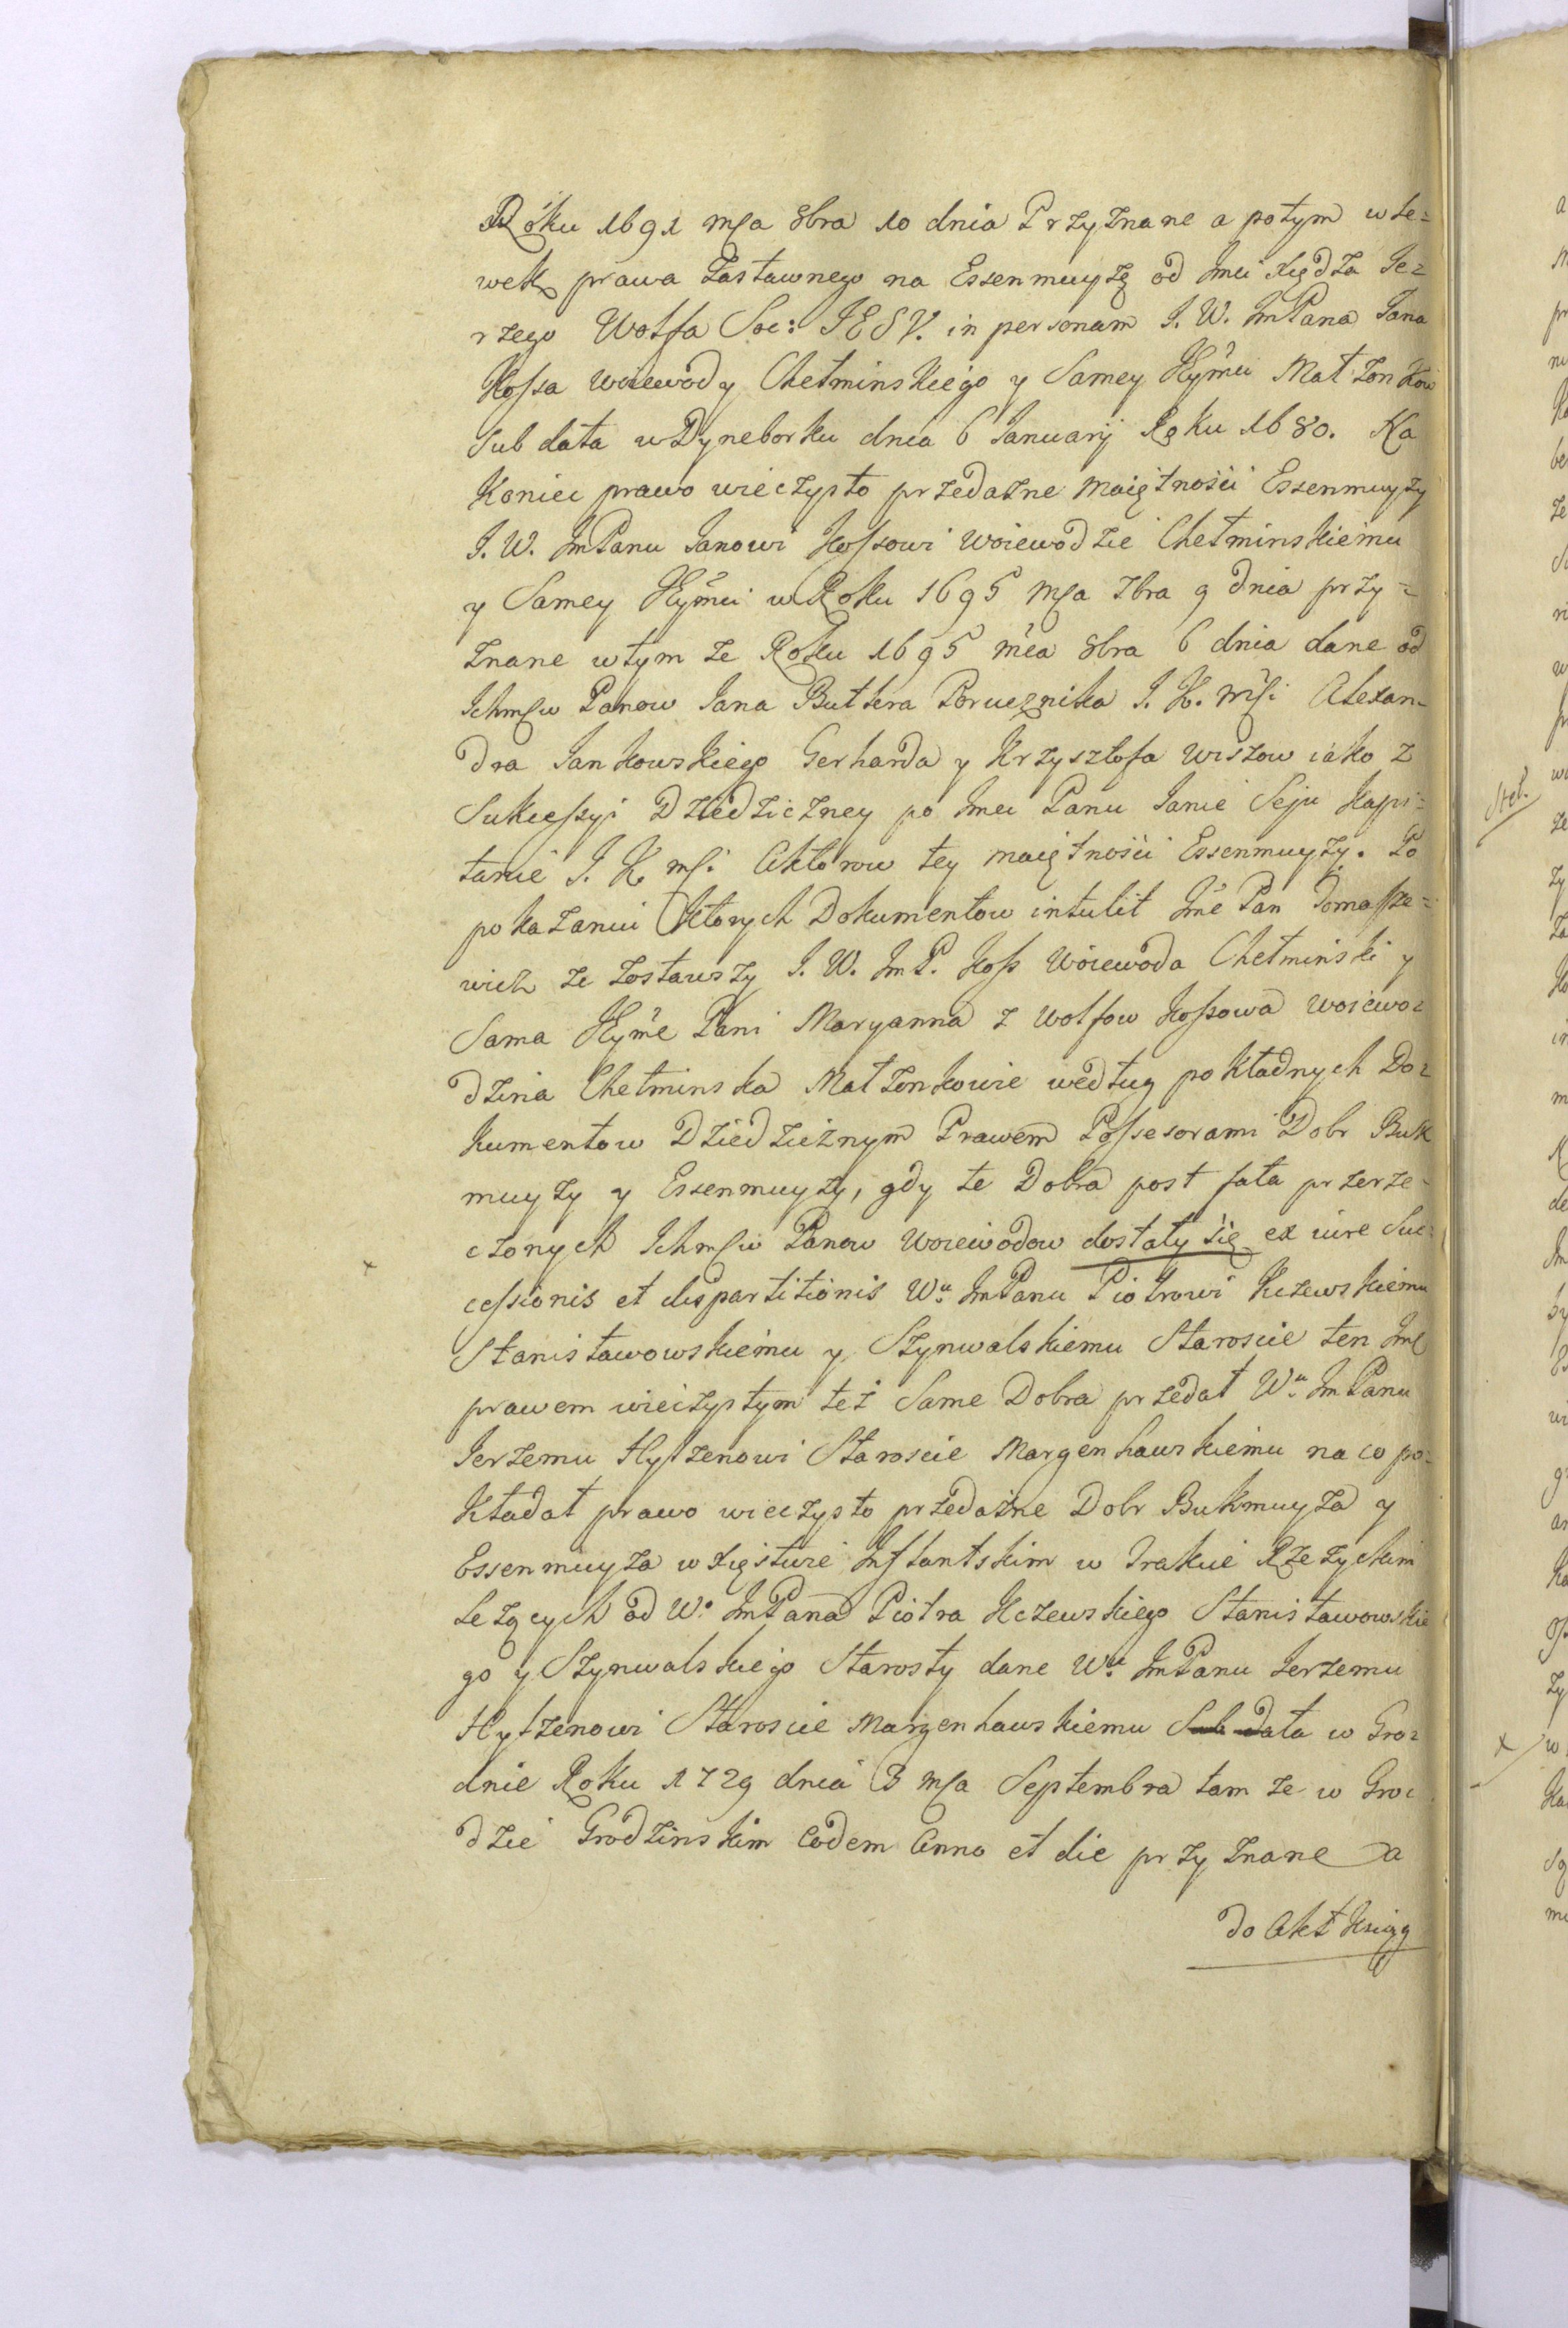 Roku 1691 mſa 8bra 10 dnia Przyznane a potym wle=
wek prawa zastawnego na Essenmuyżę od Jmci xiędza Je=
rzego Wolfa Soc: JESV. in personam J. W. JmPana Jana
Koſsa woiewody Chełminskiego y Samey Jeymci Małżonkow
Sub data w Dyneborku dnia 6 Januarij Roku 1680. Na
Koniec prawo wieczysto przedażne maiętności Essenmuyży
J. W. JmPanu Janowi Koſsowi woiewodzie Chełminskiemu
y Samey Jeymci w Roku 1695 mſa 7bra 9 dnia przy=
znane w tym ze Roku 1695 mca 8bra 6 dnia dane od
Ichmſw Panow Jana Butlera Porucznika J. K. mſi Alexan=
dra Jankowskiego Gerharda y Krzysztofa wiszow iako z
Sukceſsyi Dziedziczney po Jmci Panu Janie Seju Kapi=
tanie J. K. mſi Aktorow tey maiętności Essenmuyży. Po
pokazaniu Ktorych Dokumentow intulit Jmć Pan Tomaſze=
wicz ze zostawszy J. W. JmP. Koſs woiewoda Chełminski y
Sama Jeymć Pani Maryanna z Wolfow Koſsowa woiewo=
dzina Chełminska Małżonkowie według pokładnych Do=
kumentow Dziedzicznym Prawem Poſsesorami Dobr Buk
muyży y Essenmuyży, gdy te Dobra post fata przerze=
czonych Ichmſw Panow woiewodow dostały się ex iure Suc=
ceſsionis et dispartitionis Wu JmPanu Piotrowi Kczewskiemu
Stanisławowskiemu y Sztynwalskiemu Staroscie ten Jmć
prawem wieczystym też Same Dobra przedał Wu JmPanu
Jerzemu Hylzenowi Staroscie Margenhauskiemu na co po=
kładał prawo wieczysto przedażne Dobr Bukmuyża y
Essenmuyża w xięstwie Inflantskim w Trakcie Rzeżyckim
Leżących od Wo JmPana Piotra Kczewskiego Stanisławowskie
go y Sztynwalskiego Starosty dane Wu JmPanu Jerzemu
Hylzenowi Staroscie Margenhauskiemu Sub Data w Gro=
dnie Roku 1729 dnia 3 mſa Septembra tam ze w Gro=
dzie Grodzinskim Eodem Anno et die przyznane a
do Akt Ksiąg